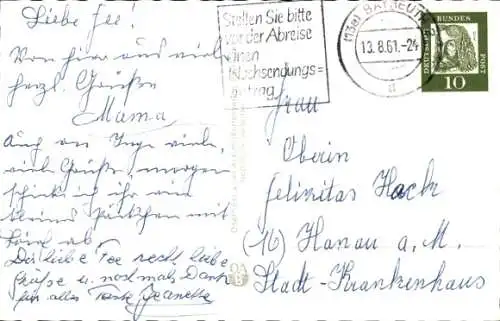 Liebe Fee!
Von hier aus viele
herzl. Grüße
Mama
Auch an Inge viele,
viele Grüße, morgen
schicke ich ihr ein
kleines Päckchen mit
ab.
Dir liebe Fee recht liebe
Grüße u. nochmals Dank
für alles Jeanette
Stellen Sie bitte
vor der Abreise
einen
Nachsendungs=
antrag
(13a) BAYREUTH
13.8.61.-24
a
DEUTSCHE BUNDESPOST
10
Frau
Oberin
Felizitas Hack
(16) Hanau a. M.
Stadt-Krankenhaus